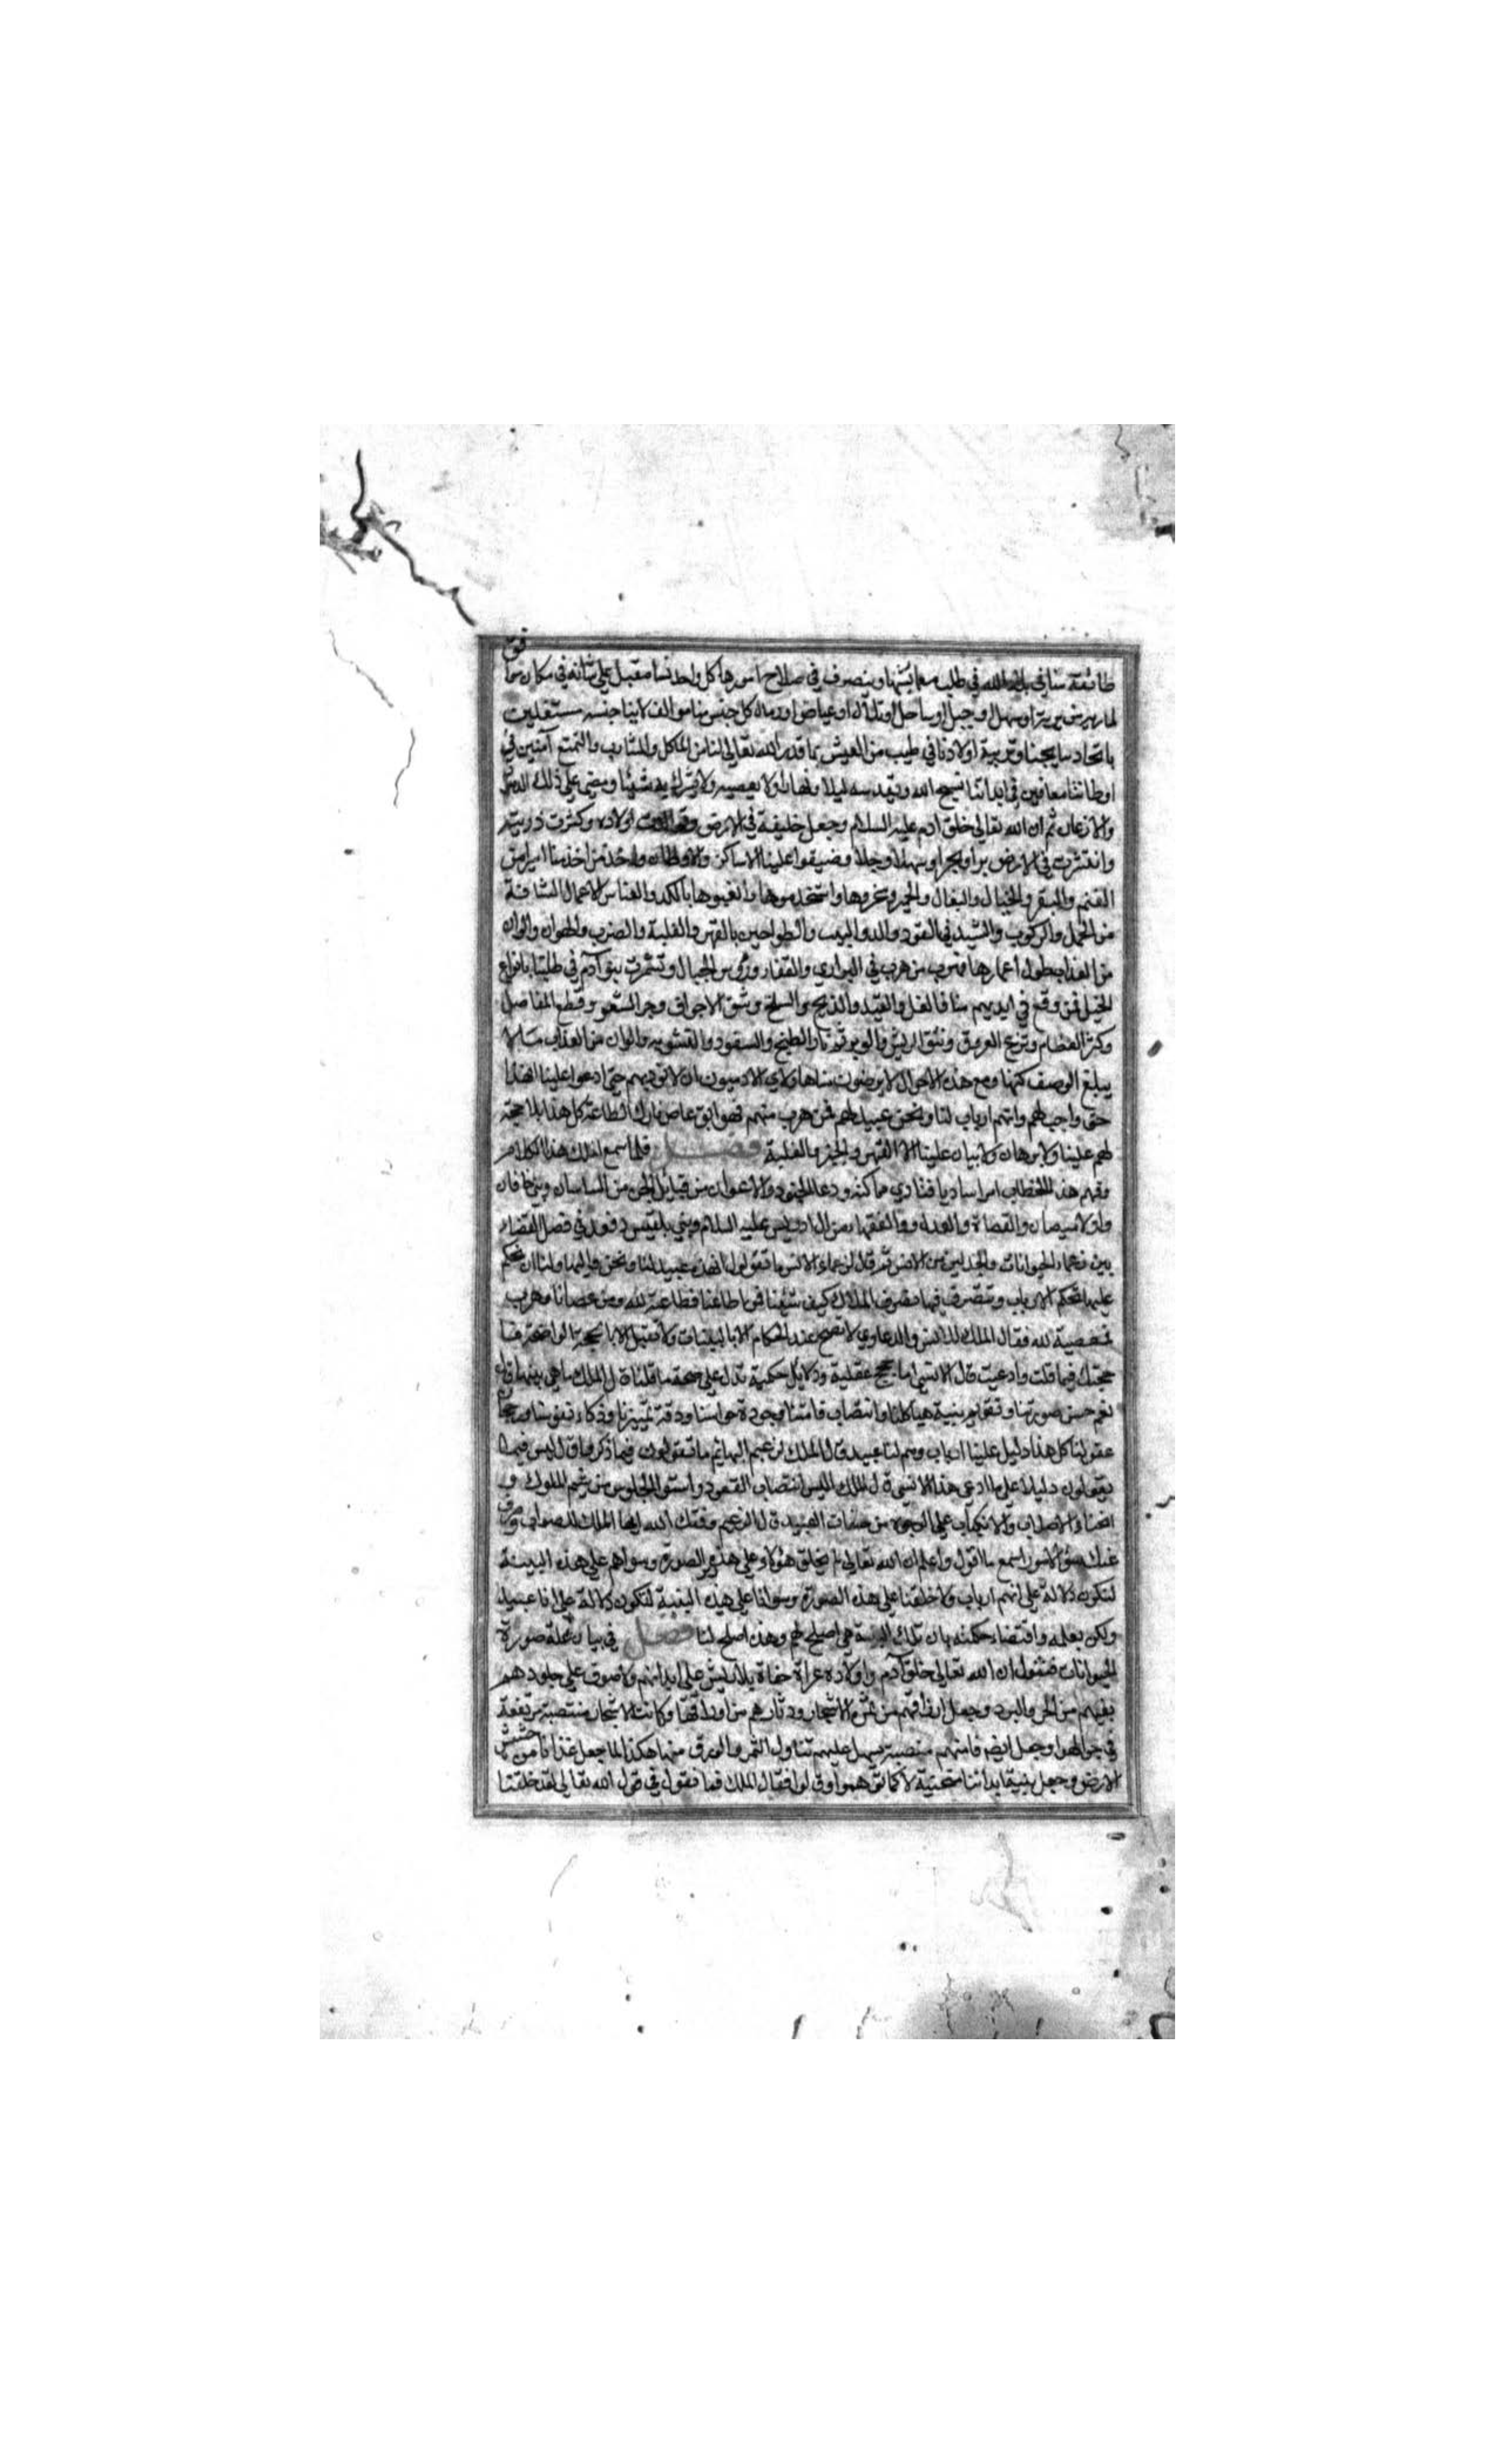 طائفة منا في بلاد الله في طلب معايشها وينصرف في صلاح امورها كل واحد منا مقبل على شانه في مكان موافق
لماربه من برية او سهل او جبل او ساحل او تلال او غياض او رمال كل جنس منا موالف لابنا جنسه مستغلين
باتحاد نتايجنا وتربية اولادنا في طيب من العيش بما قدر الله تعالى لنا من الماكل والمشارب والتمتع آمنين في
اوطاننا معافين في ابداننا نسبح الله ونقدسه ليلا ونهارا ولا نعصيه ولا نشرك به شيئا ومضى على ذلك الدهور
والازمان ثم ان الله تعالى خلق ادم عليه السلام وجعل خليفة في الارض اولاده وكثرت ذريته
وانتشرت في الارض برا وبحرا وسهلا وجبلا وضيقوا علينا الاماكن والاوطان واخذ من اخذ منا اسيرا من
الغنم والبقر والخيال والبغال والحمير وغيرها واستخدموها واتعبوها بالكد والعنا من الاعمال الشاقة
من الحمل والركوب والشيد في الفود والدواليب والطواحين بالقهر والغلبة والضرب والهوان والوان
من العذاب طول اعمارها فهرب من هرب في البراري والقفار ورؤس الجبال وتشمرت بنو آدم في طلبنا بانواع
الحيل فمن وقع في ايديهم منا فالغل والقيد والذبح والسلخ وشق الاجواف وجر الشعور وقطع المفاصل
وكسر العظام ونزع العروق ونتف الريش والوبر ثم نار الطبخ والسفود والتشويه والوان من العذاب مما لا
يبلغ الوصف كنهها ومع هذه الاحوال لا يرضون منا هاولاي الادميون بان لا نوديهم حتى ادعوا علينا ان هذا
حق واجب لهم وانهم ارباب لنا ونحن عبيد لهم فمن هرب منهم فهو ابق عاص تارك الطاعة كل هذا بلا حجة
لهم علينا ولا برهان ولا بيان علينا الا القهر والجبر والغلبة فصل فلما سمع الملك هذا الكلام
وفهم هذا الخطاب امر مناديا فنادي في مملكته ودعا الجنود والاعوان من قبايل الجن من الساسان وبني خاقان
واولا ميصان والقضاة والعدل والفقها من ال ادريس عليه السلام وبني بلقيس وقعد في فصل القضاء
بين زعماء الحيوانات والجدليين من الانس ثم قال لزعماء الانس ما تقولون ان هذه عبيد لنا ونحن مواليها ولنا ان نحكم
عليها تحكم الارباب ونتصرف فيها تصرف الملاك كيف شئنا فمن اطاعنا فطاعته لله ومن عصانا وهرب
فمعصية لله فقال الملك للانس والدعاوي لا تصح عند الحكام الا بالبينات ولا تقبل الا بالحجة الواضحة فما
حجتك فيما قلت وادعيت قال الانسي اما حجج عقلية ودلايل حكمية تدل على صحة ما قلنا قال الملك ما هي بينها قال
نعم حسن صورتنا وتقويم بنية هياكلنا وانتصاب قامتنا وجودة حواسنا ودقة تمييزنا وذكاء نفوسنا ورجحان
عقولنا كل هذا دليل علينا ارباب وهم لنا عبيد قال الملك لزعيم البهايم ما تقولون فيما ذكروا قال ليس فيما
يقولون دليلا على ما ادعى هذا الانسي قال الملك اليس انتصاب القعود واستوا الجلوس من شيم الملوك و
انحناء الاصلاب والانكباب على الوجوه من صفات العبيد قال الزعيم وفقك الله ايها الملك للصواب وصرف
عنك سؤ الامور اسمع ما اقول واعلم ان الله تعالى لم يخلق هؤلاء على هذه الصورة وسواهم على هذه البنية
لتكون دلالة على انهم ارباب ولا خلقنا على هذه الصورة وسوانا على هذه البنية لتكون دلالة على انا عبيد
ولكن بعلمه واقتضاء حكمته بان تلك البنية هي اصلح لهم وهذه اصلح لنا فصل في بيان علة صورة
الحيوانات فنقول ان الله تعالى خلق آدم واولاده عراة حفاة بلا ريش على ابدانهم ولا صوف على جلودهم
يقيهم من الحر والبرد وجعل ارزاقهم من ثمر الاشجار ودثارهم من اوراقها وكانت الاشجار منتصبة مرتفعة
في جو الهوا وجعل ايضا قامتهم منتصبة يسهل عليهم تناول الثمر والورق منها هكذا لما جعل غذانا من حشيش
الارض وجعل بنية ابداننا منحنية لا كما توهموا وقالوا فقال الملك فما تقول في قول الله تعالى لقد خلقنا